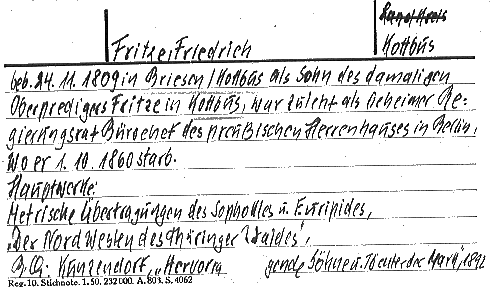 Land Kreis
Fritze, Friedrich
Kottbus
geb. 24. 11. 1809 in Briesen / Kottbus als Sohn des damaligen
Oberpredigers Fritze in Kottbus, war zuletzt als Geheimer Re-
gierungsrat Bürochef des preußischen Herrenhauses in Berlin,
wo er 1. 10. 1860 starb.
Hauptwerke:
Metrische Übertragungen des Sophokles u. Euripides,
„Der Nord Westen des Thüringer Waldes",
Kunzendorf, „Hervorra gende Söhne u. Töchter der Mark", 1892
Reg. 10. Stichnote. 1. 50. 232 000. A. 803. S. 4062